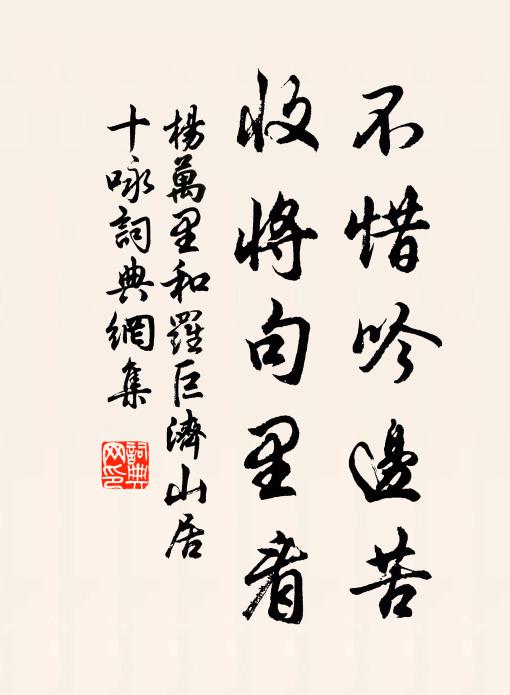 不惜吟邊苦
收將句里看
楊萬里和羅巨濟山居
十咏詞典網集
詞典
網印